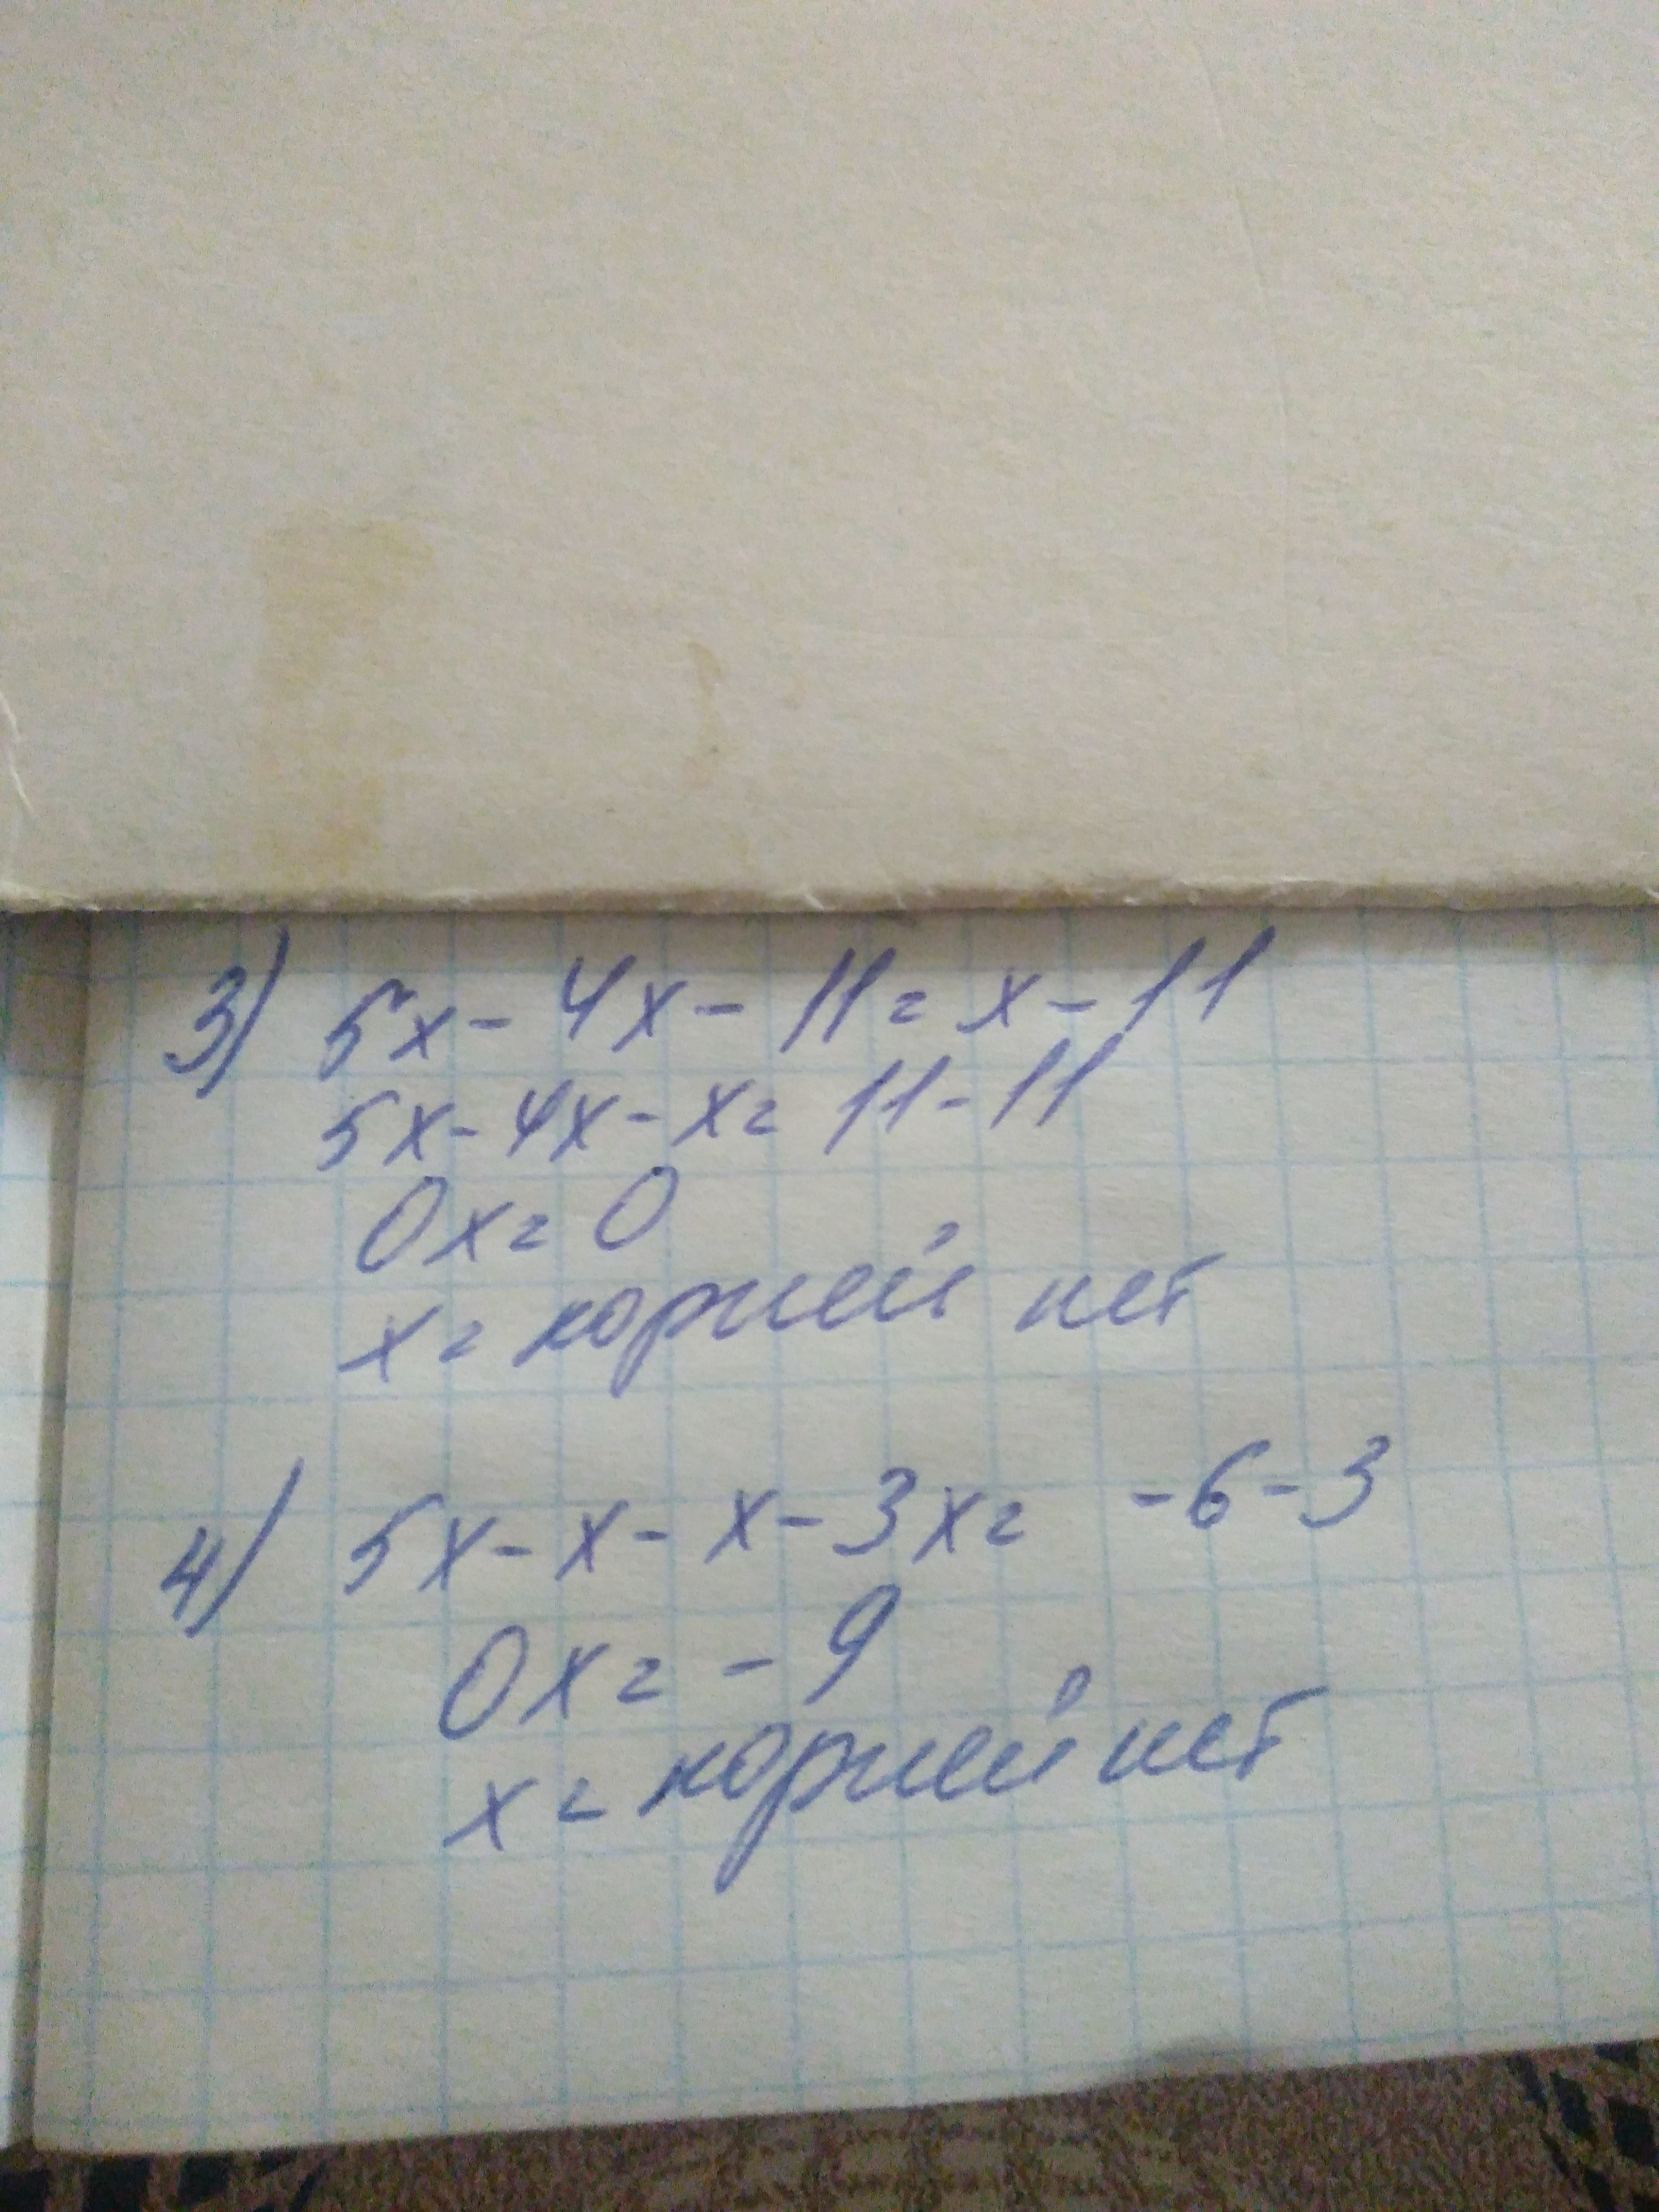 3) 5x - 4x - 11 = x - 11
5x - 4x - x = 11 - 11
0x = 0
x = корней нет
4) 5x - x - x - 3x = -6 - 3
0x = -9
x = корней нет